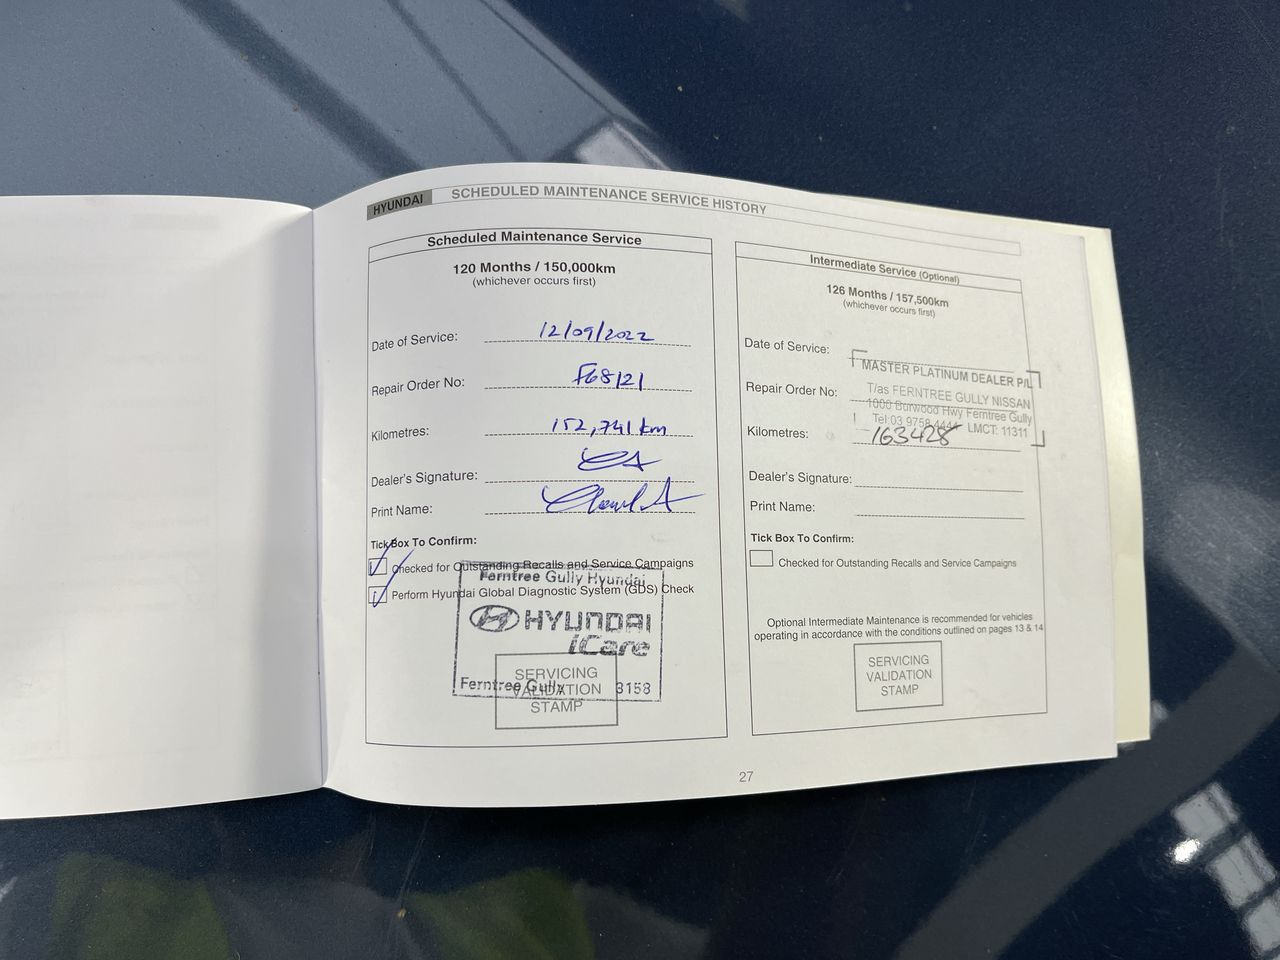 HYUNDAI SCHEDULED MAINTENANCE SERVICE HISTORY
Scheduled Maintenance Service
120 Months / 150,000km
(whichever occurs first)
Date of Service: 12/09/2022
Repair Order No: F68121
Kilometres: 152,741 km
Dealer's Signature:
Print Name:
Tick Box To Confirm:
Checked for Outstanding Recalls and Service Campaigns
Perform Hyundai Global Diagnostic System (GDS) Check
Ferntree Gully Hyundai
HYUNDAI
iCare
Ferntree Gully 3158
SERVICING
VALIDATION
STAMP
Intermediate Service (Optional)
126 Months / 157,500km
(whichever occurs first)
Date of Service:
Repair Order No:
Kilometres: 163428
MASTER PLATINUM DEALER P/L
T/as FERNTREE GULLY NISSAN
1000 Burwood Hwy Ferntree Gully
Tel:03 9758 4444 LMCT: 11311
Dealer's Signature:
Print Name:
Tick Box To Confirm:
Checked for Outstanding Recalls and Service Campaigns
Optional Intermediate Maintenance is recommended for vehicles
operating in accordance with the conditions outlined on pages 13 & 14
SERVICING
VALIDATION
STAMP
27